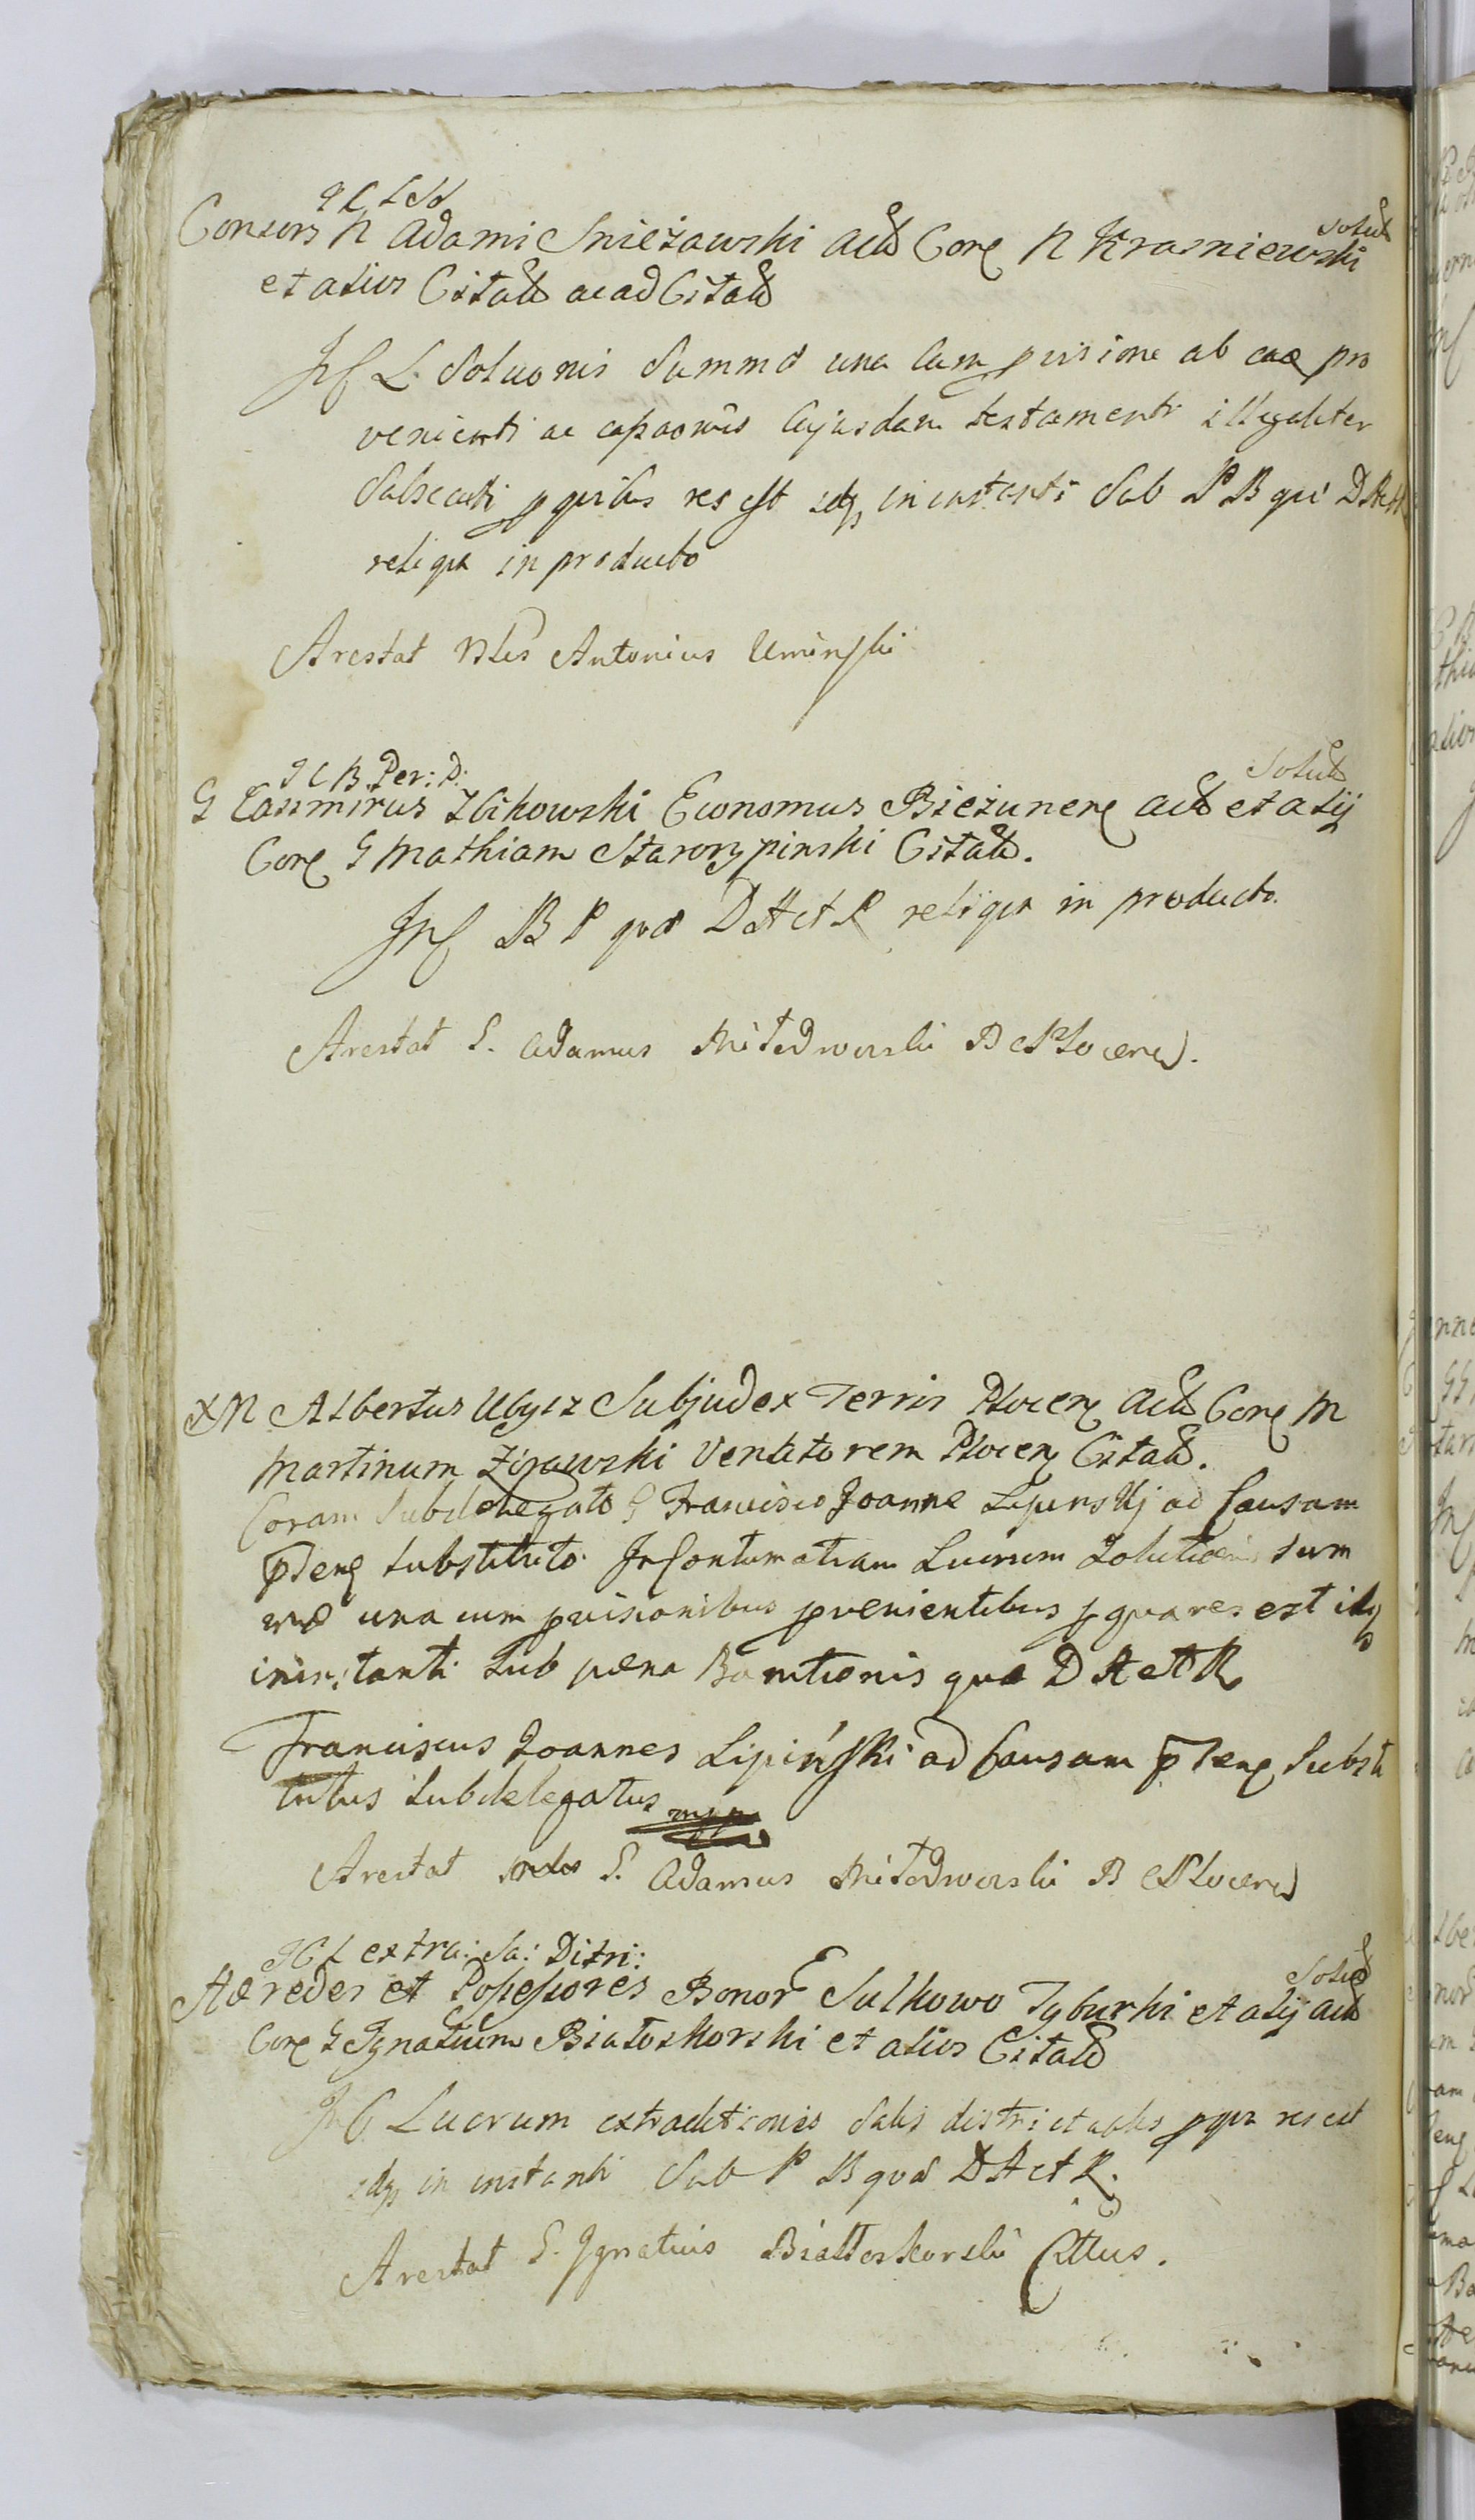 Consors N Adami Snieżawski act Cor N Krasniewski
solut
et alios Citat ac ad Citat
In C L. Soluonis Summæ una cum pvisione ab eaq pro
venienti ac cassaonis Cujusdam testamenti illegaliter
Subsecuti p quibus res est idq in instanti Sub P B qui D A et R
reliqua in producto
Arestat Nlis Antonius Uminski
I C B. Per: P:
Solut
G Casimirus Zbikowski Economus Bieżunen act et alij
Cor G Mathiam Starorypinski Citat.
In C B P qvæ D A et R reliqua in producto.
Arestat G. Adamus Miłodworski B C Plocen.
X M Albertus Ubysz Subjudex Terris Plocen act Cor M
Martinum Żórawski Venatorem Plocen Citat.
Coram Subdelegato G Francisco Joanne Lipinskij ad Causam
pten substituto. In Contumatiam Lucrum Solutionis sum
mæ una cum pvisionibus pvenientibus p qva res est idq
in instanti Sub pæna Banitionis quæ D A et R
Franciscus Joannes Lipiński ad Causam pten Substi
tutus Subdelegatus mpp
Arestat G. Adamus Miłodworski B C Plocen
I C L extra: Sa: Distri:
Solut
Hæredes et Possessores Bonor Sulkowo Tyburki et alij act
Cor G Ignatium Białoskorski et alios Citat
In C Lucrum extraditionis Salis districtualis p qua res est
idq in instanti Sub P B qvæ D A et R.
Arestat G. Ignatius Białłoskorski Cittus.